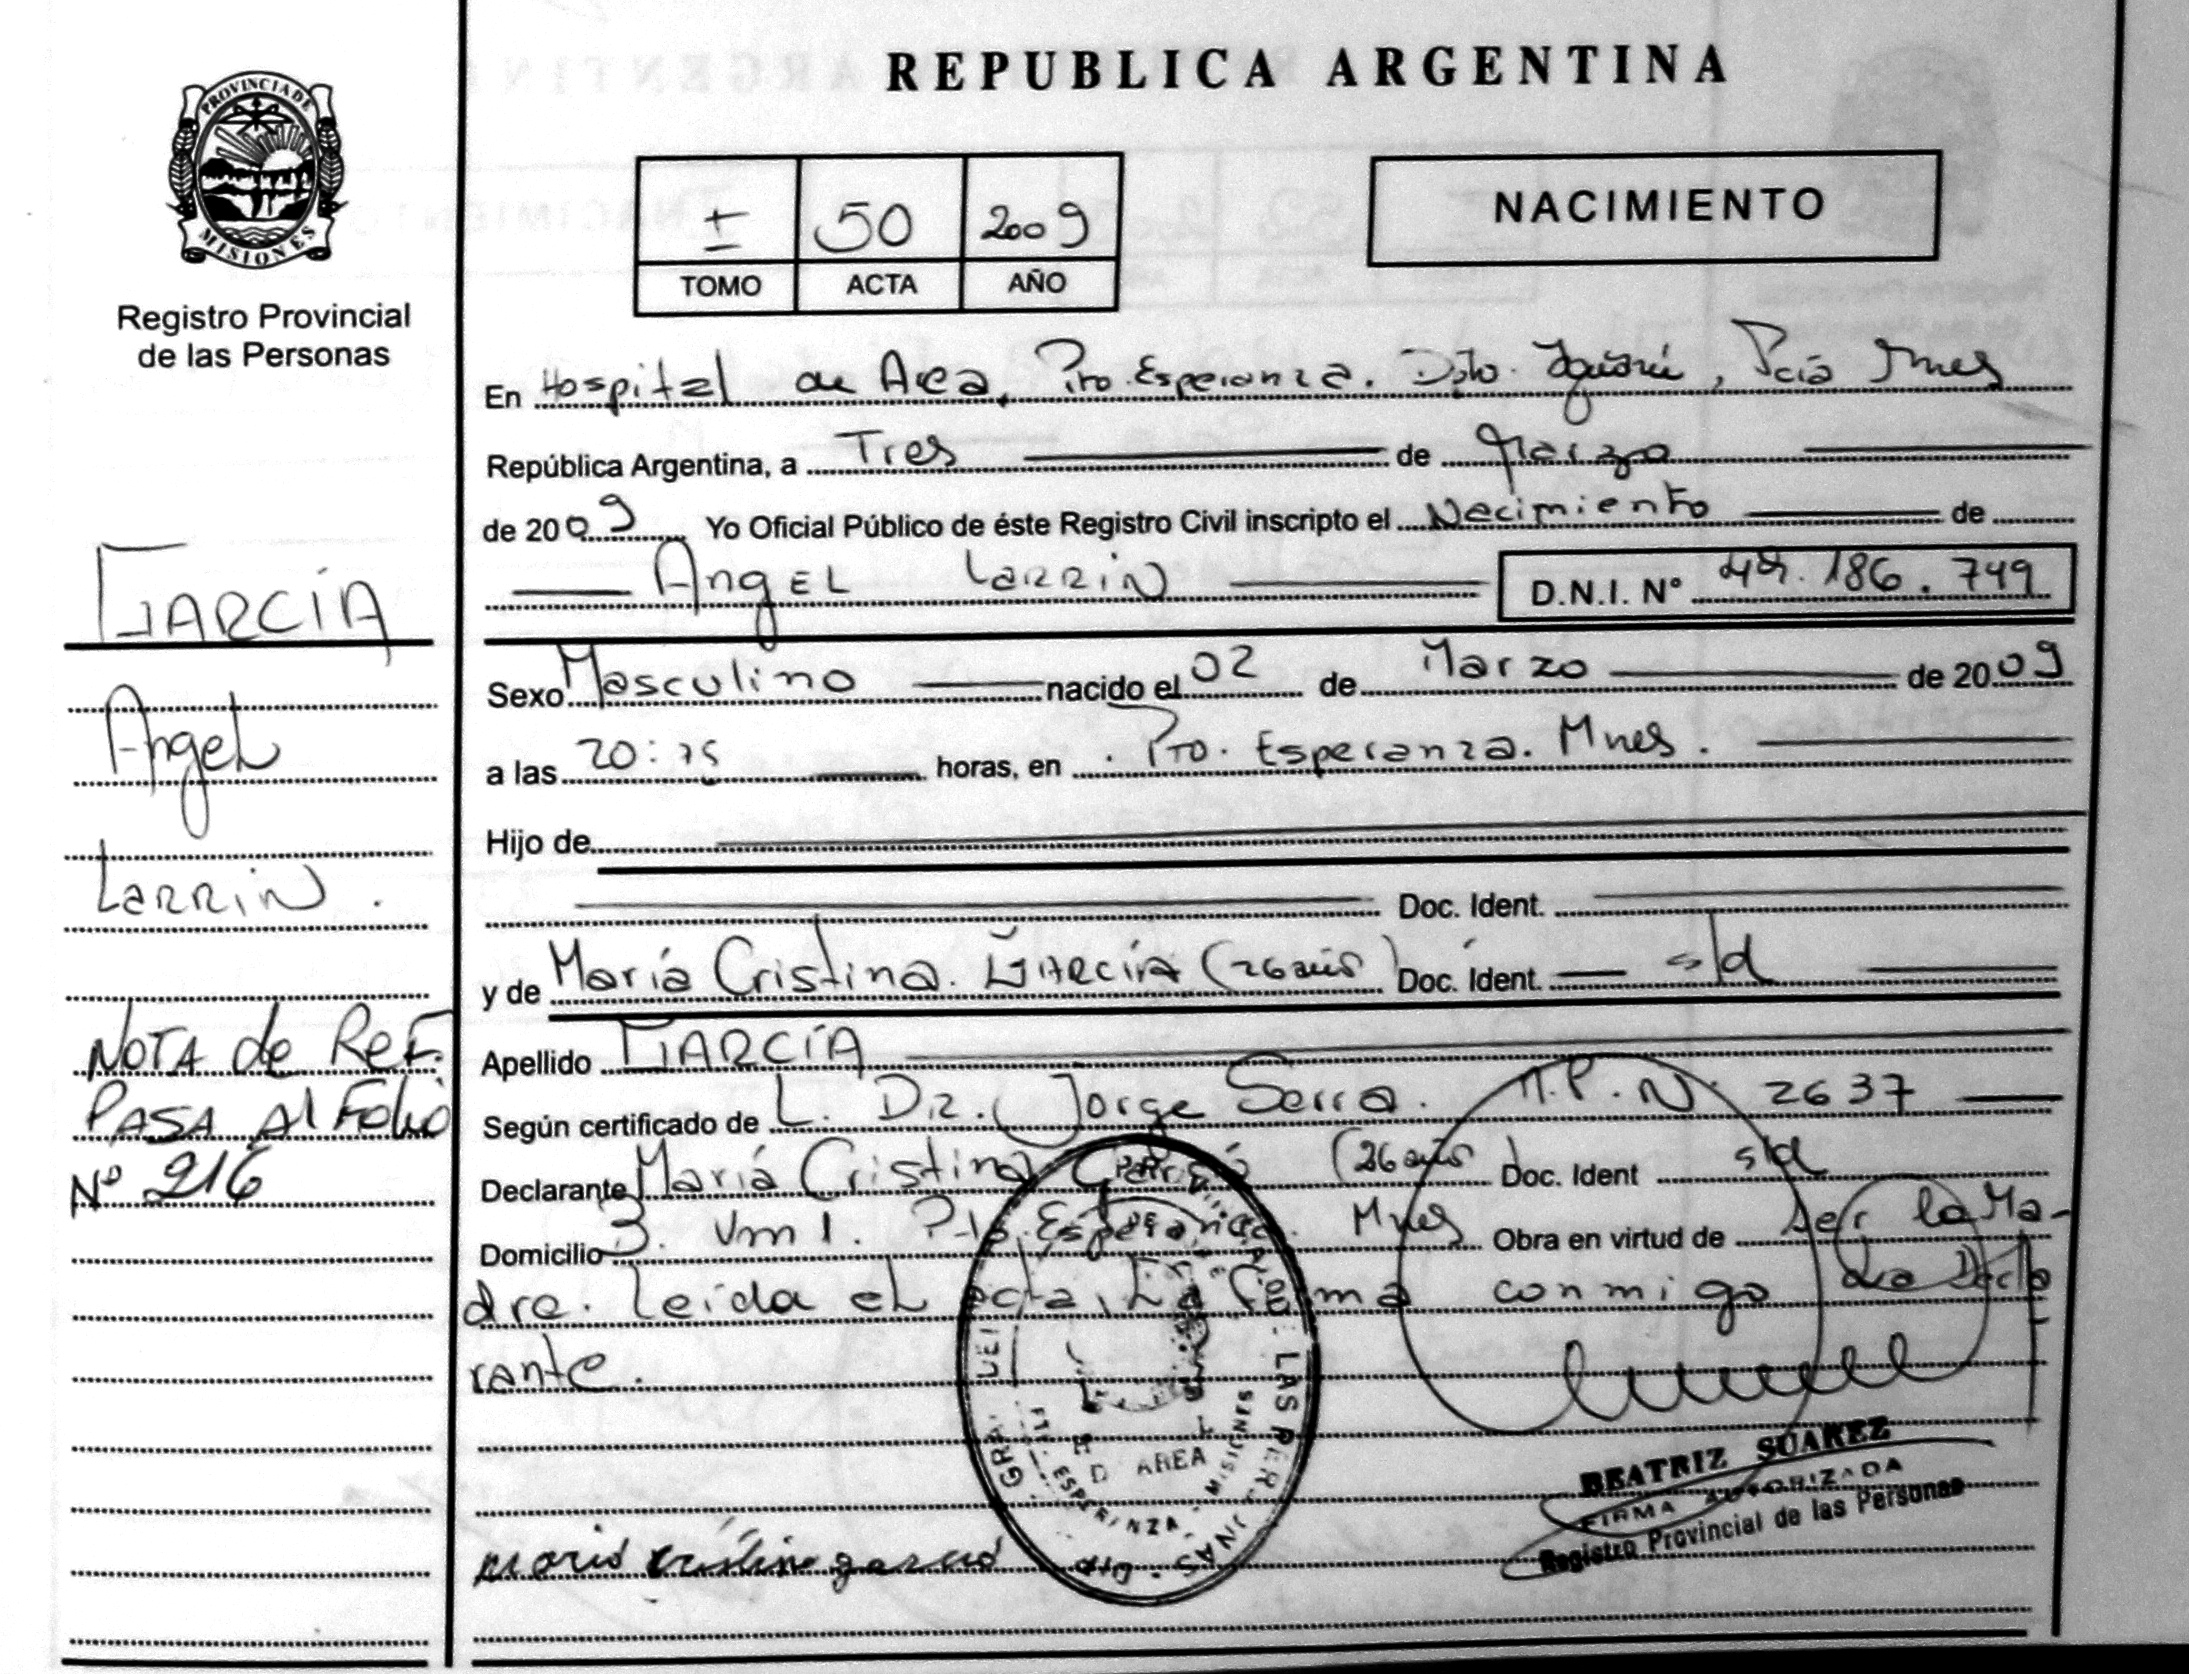 PROVINCIA DE
MISIONES
Registro Provincial
de las Personas
GARCÍA
Angel
Larrin.
NOTA de Ref.
PASA Al Folio
Nº 216
REPUBLICA ARGENTINA
I 50 2009
TOMO ACTA AÑO
NACIMIENTO
En Hospital de Area, Pto. Esperanza. Dpto. Iguazú, Pcia Mnes
República Argentina, a Tres de Marzo
de 2009 Yo Oficial Público de éste Registro Civil inscripto el Nacimiento de
Angel Larrin D.N.I. Nº 186.749
Sexo Masculino nacido el 02 de Marzo de 2009
a las horas, en Pto. Esperanza. Mnes.
Hijo de
Doc. Ident.
y de María Cristina. GARCÍA (26 años) Doc. Ident. s/d
Apellido GARCÍA
Según certificado de L. Dr. Jorge Serra. M.P.N. 2637
Declarante María Cristina García (26 años Doc. Ident s/d
Domicilio Pto. Esperanza. Mnes Obra en virtud de ser la Ma-
dre. Leida el acta, La firma conmigo la Decla
rante.
LAS PERSONAS
D AREA
ESPERANZA - MISIONES
BEATRIZ SUAREZ
FIRMA AUTORIZADA
Registro Provincial de las Personas
maria cristina garcia